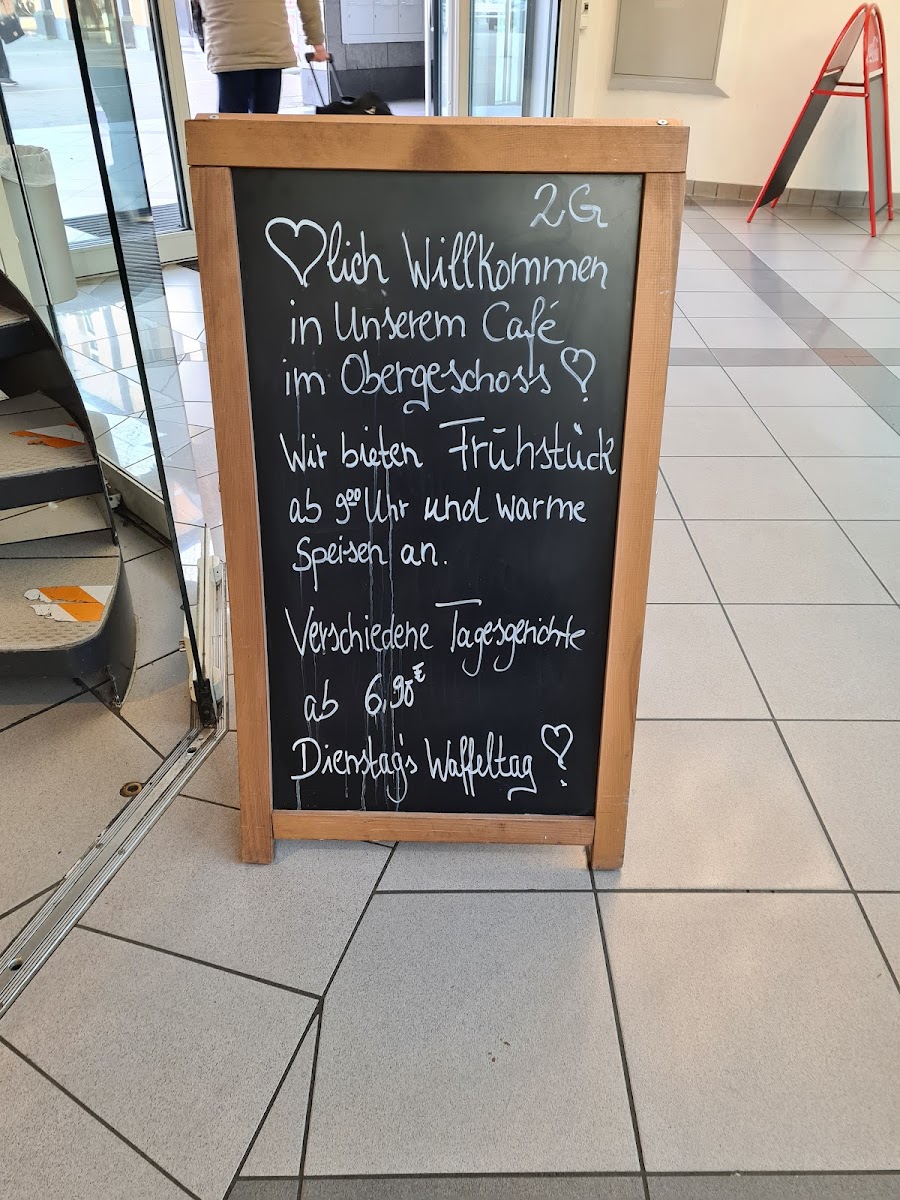 2G
♡lich Willkommen
in Unserem Café
im Obergeschoss ♡
Wir bieten Frühstück
ab 9⁰⁰ Uhr und warme
Speisen an.
Verschiedene Tagesgerichte
ab 6,90€
Dienstag's Waffeltag ♡